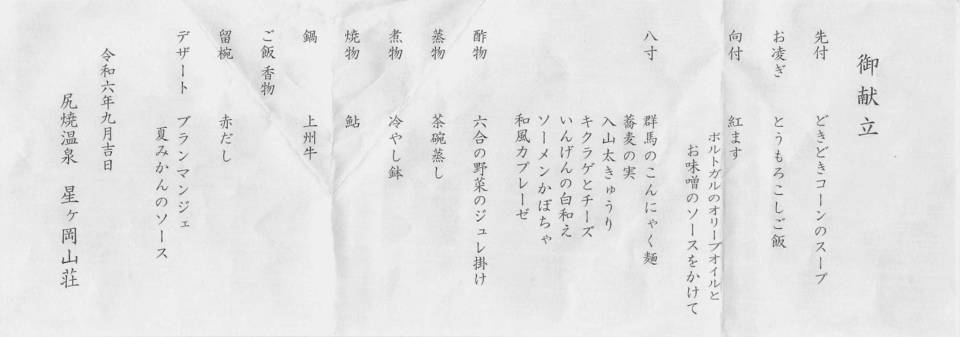 御献立
先付 どきどきコーンのスープ
お凌ぎ とうもろこしご飯
向付 紅ます
ポルトガルのオリーブオイルと
お味噌のソースをかけて
八寸 群馬のこんにゃく麺
蕎麦の実
入山太きゅうり
キクラゲとチーズ
いんげんの白和え
ソーメンかぼちゃ
和風カプレーゼ
酢物 六合の野菜のジュレ掛け
蒸物 茶碗蒸し
煮物 冷やし鉢
焼物 鮎
鍋 上州牛
ご飯 香物
留椀 赤だし
デザート ブランマンジェ
夏みかんのソース
令和六年九月吉日
尻焼温泉 星ヶ岡山荘